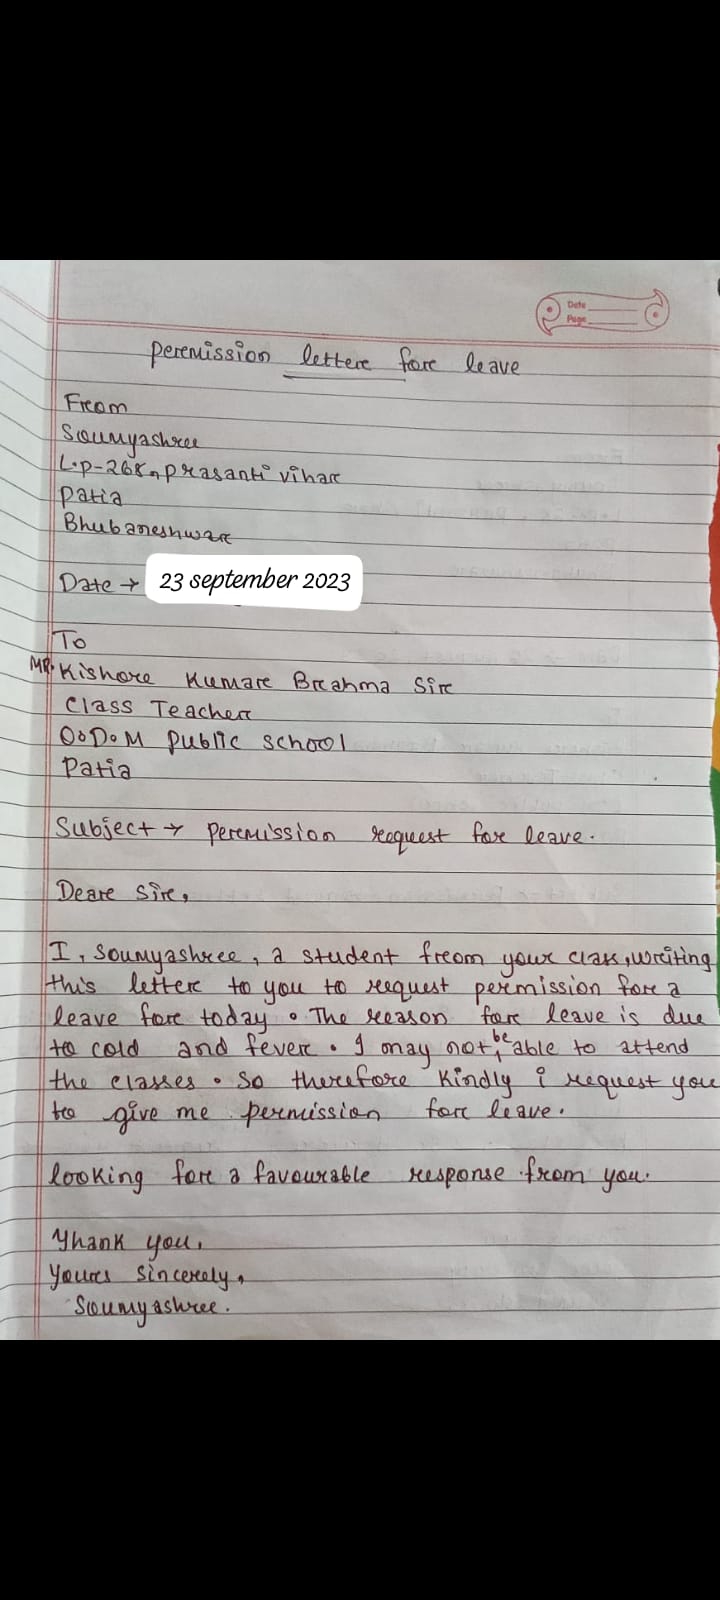 Date
Page
permission letter for leave
From
Soumyashree
L.p-268, prasanti vihar
patia
Bhubaneshwar
Date → 23 september 2023
To
MR. Kishore Kumar Brahma Sir
Class Teacher
O.D.M public school
Patia
Subject → permission request for leave.
Dear Sir,
I, Soumyashree, a student from your class, writing
this letter to you to request permission for a
leave for today. The reason for leave is due
to cold and fever. I may not be able to attend
the classes. So therefore kindly i request you
to give me permission for leave.
looking for a favourable response from you.
Thank you,
Yours sincerely,
Soumyashree.